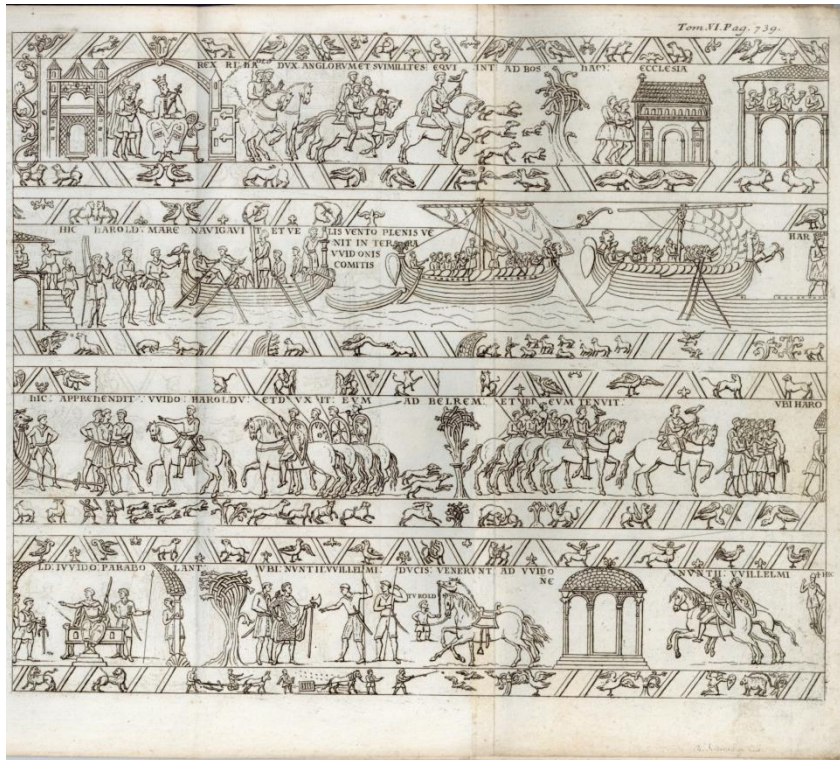 Tom. VI. Pag. 739.
REX DUX ANGLORUM ET SUI MILITES EQUI INT AD BOS HAM: ECCLESIA
HIC HAROLD: MARE NAVIGAVI T ET VE LIS VENTO PLENIS VE
NIT IN TERRA
VVIDONIS
COMITIS
HAR
HIC: APPREHENDIT: VVIDO: HAROLDV: ET DVXIT: EVM AD BELREM: ET IBI EVM TENVIT: VBI HARO
LD: 7 VVIDO: PARABO LANT: VBI: NVNTII: VVILLELMI: DVCIS: VENERVNT AD VVIDO
NE
TVROLD
NVNTII: VVILLELMI
HIC